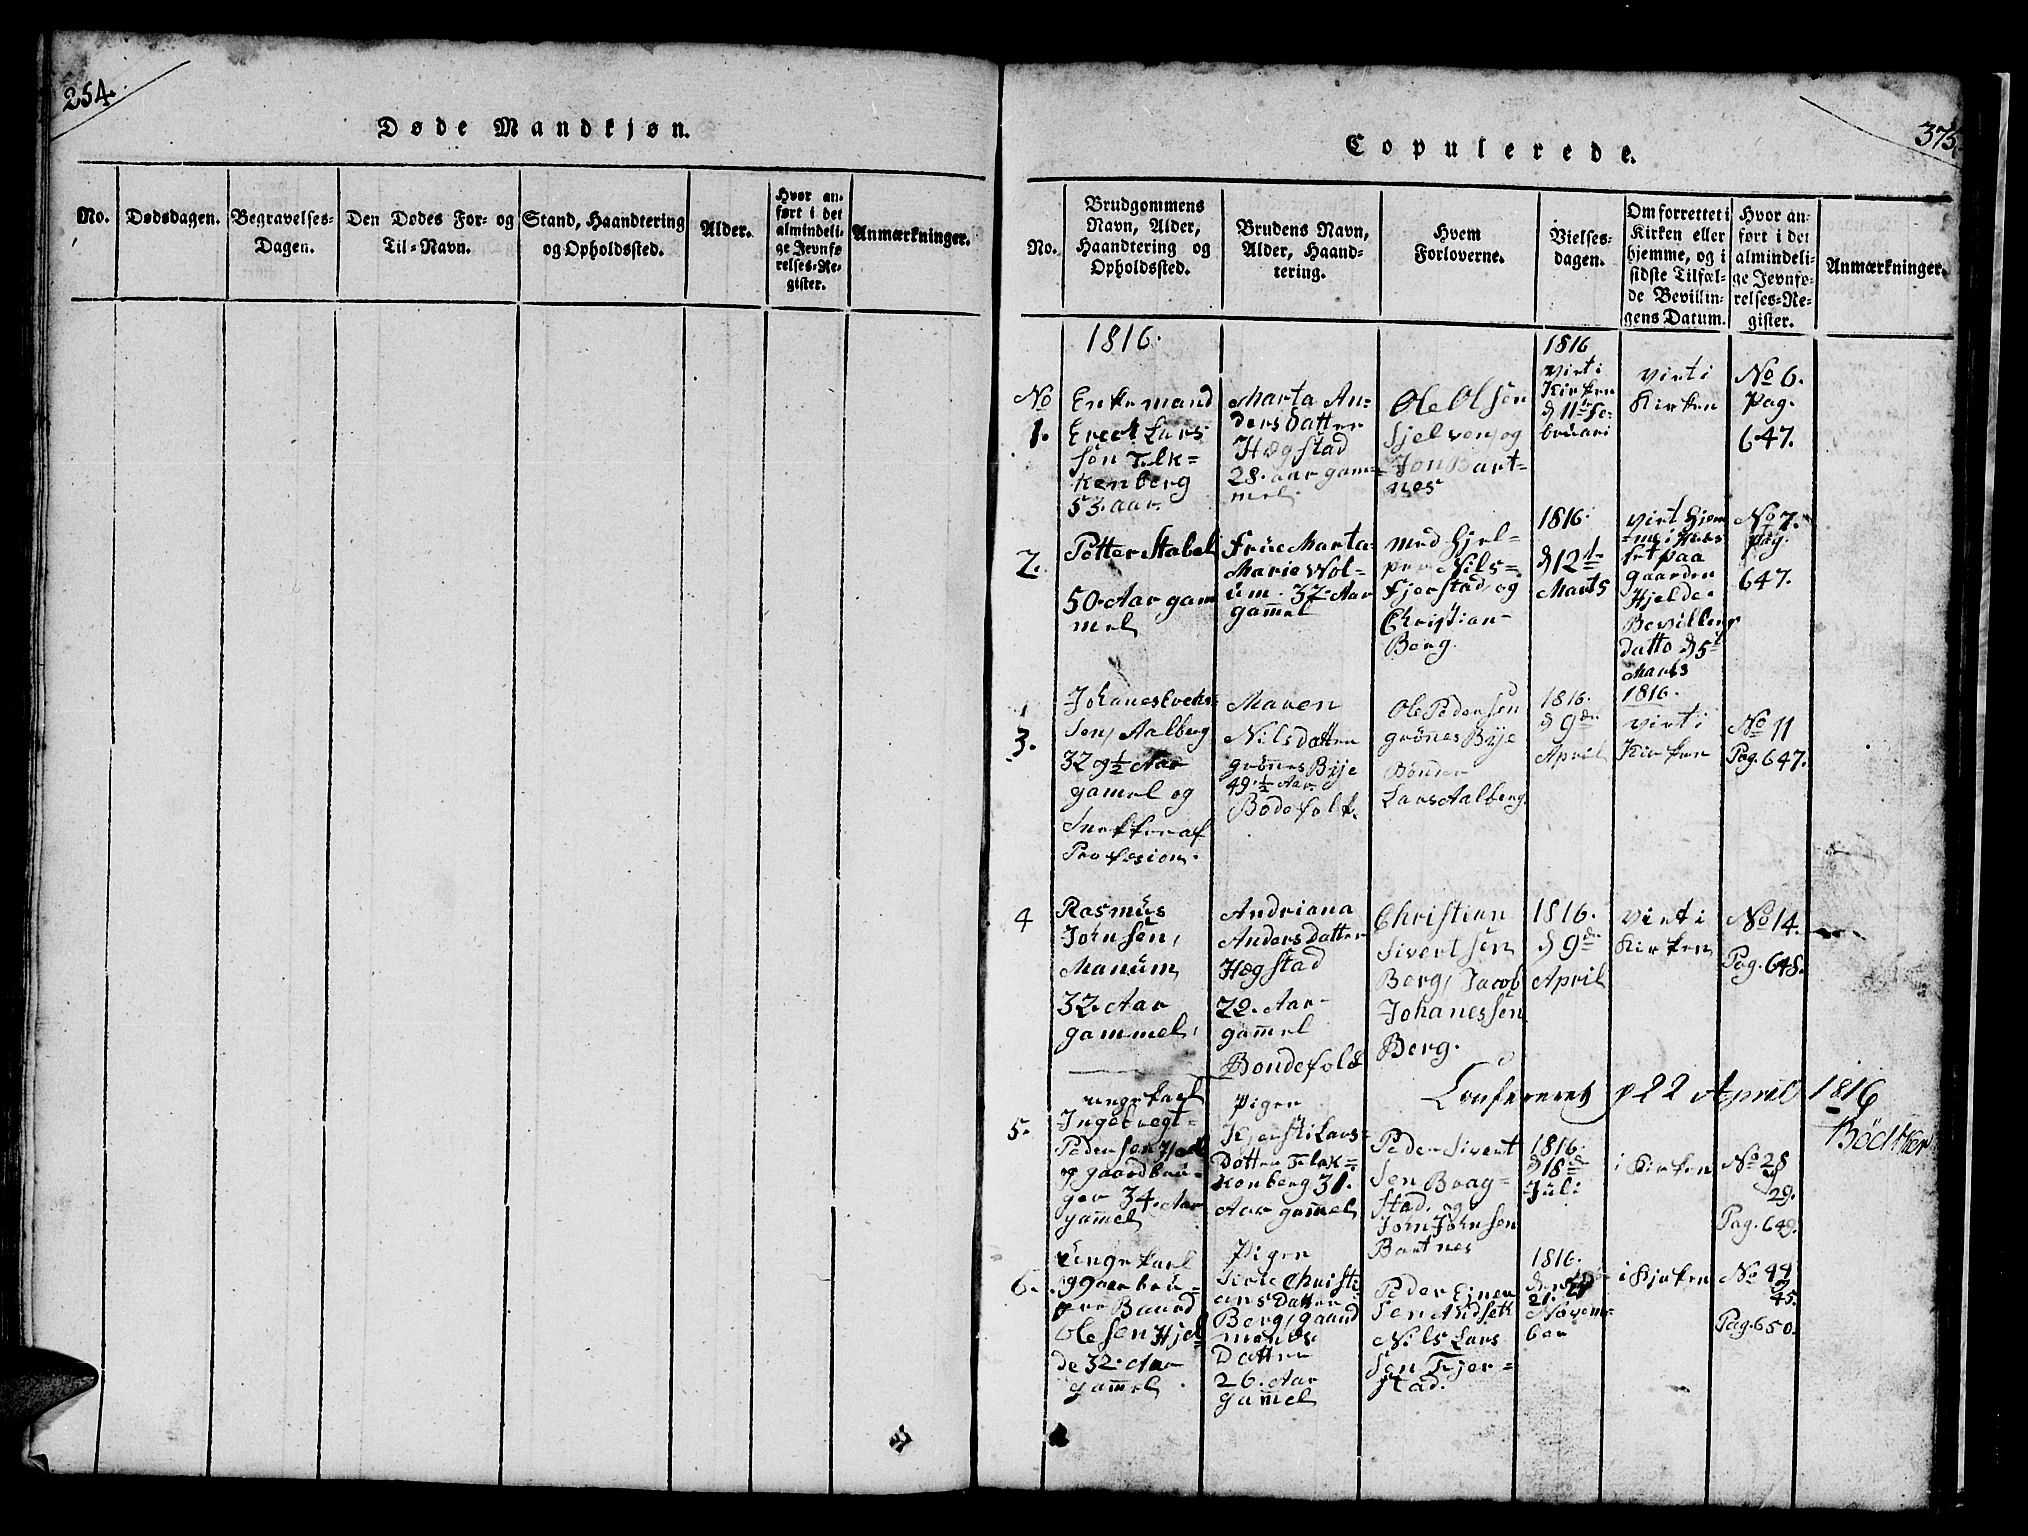 254.
Døde Mandkjøn.
No.
Dødsdagen.
Begravelses-
Dagen.
Den Dødes For- og
Til-Navn.
Stand, Haandtering
og Opholdssted.
Alder.
Hvor an-
ført i det
almindeli-
ge Jevnfø-
relses-Re-
gister.
Anmærkninger.
375.
Copulerede.
No.
Brudgommens
Navn, Alder,
Haandtering og
Opholdssted.
Brudens Navn,
Alder, Haand-
tering.
Hvem
Forloverne.
Vielses-
dagen.
Om forrettet i
Kirken eller
hjemme, og i
sidste Tilfæl-
de Bevillin-
gens Datum.
Hvor an-
ført i det
almindeli-
ge Jevnfø-
relses-Re-
gister.
Anmærkninger.
1816.
No
1.
Enkemand
Ereck Lars
sen
53. aar.
Marta An-
ders Datter
Hægstad
28. aar gam-
mel.
Ole Olsen
og
Jon Bart-
nes
1816
viet i
Kirken
d 11te Fe-
bruari
viet i
Kirken
No 6.
Pag.
647.
2.
Petter Stabel
50. Aar gam
mel
Früe Marta
Marie Wol-
üm. 37. Aar
gam̄el
med Hjel-
per Nils
Fjerstad, og
Christian
Berg.
1816.
d 12te
Marts
viet Hjem
me i Huus
set paa
gaarden
Hjelde.
Bevillings
datto d 5t
Marts
1816.
No 7.
Pag.
647.
3.
Johanes
Sen, Aalberg
32 g ½ Aar
gamel og
Snekker af
Profesion.
Maren
Nils Datter
grönes Bye
49. ½ Aar
Ole Pedersen
grönes Bye
Lars Aalberg.
1816.
d 9de
April
viet i
Kirken
No 11
Pag. 647.
4
Rasmüs
Johnsen,
Manüm
32. Aar
gammel,
Andriana
Anders Datter
Hægstad
22. Aar
gam̄el
Bondefolck
Christian
Sivertsen
Berg, Jacob
Johanessen
Berg.
1816.
d 9de
April
viet i
Kirken
No 14.
Pag. 648.
Confereret d 22 April 1816
Bödtker
5.
ungekarl
Ingebregt
Pedersen
og gaardbrü-
ger 34. Aar
gam̄el
Pigen
Kjersti Lars-
Datter
31.
Aar gam̄el
Peder Sivert
Sen Brag-
Stad. og
Jon Johnsen
Bartnes
1816.
d 18de
Juli
i Kirken
No 28
29.
Pag. 649.
6.
Ungekarl
Baard
Olesen Hjel
de 32. Aar
gam̄el.
Pigen
Christi
ans Datter
Berg, gaard
mands
Datter
26. Aar
gam̄el
Peder Ejner
Sen Aüdset
Nils Lars
Sen Fjer-
stad.
1816.
21.
Novem-
ber
i Kjrken
No 44
45.
Pag. 650.